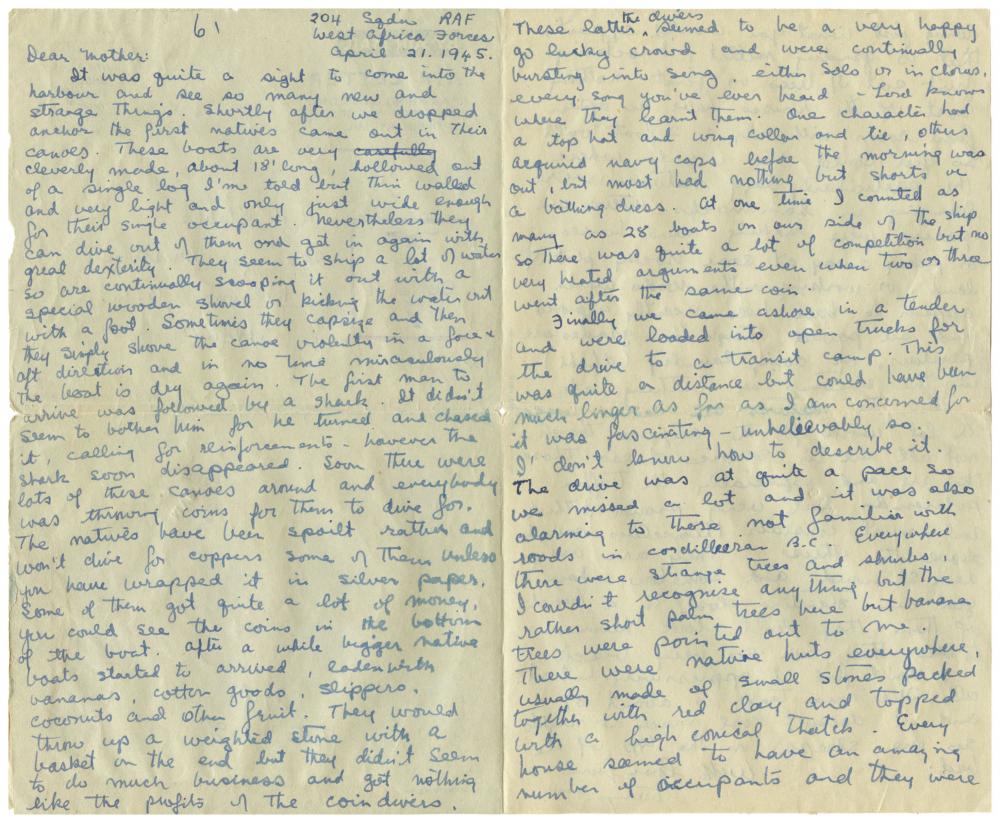 61
204 Sqdn RAF
West Africa Forces
April 21. 1945.
Dear Mother:
It was quite a sight to come into the
harbour and see so many new and
strange things. Shortly after we dropped
anchor the first natives came out in their
canoes. These boats are very carefully
cleverly made, about 18' long, hollowed out
of a single log I'me told but thin walled
and very light and only just wide enough
for their single occupant. Nevertheless they
can dive out of them and get in again with
great dexterity. They seem to ship a lot of water
so are continually scooping it out with a
special wooden shovel or kicking the water out
with a foot. Sometimes they capsize and then
they simply shove the canoe violently in a fore &
aft direction and in no time miraculously
the boat is dry again. The first man to
arrive was followed by a shark. It didn't
seem to bother him for he turned and chased
it, calling for reinforcements - however the
shark soon disappeared. Soon there were
lots of these canoes around and everybody
was throwing coins for them to dive for.
The natives have been spoilt rather and
won't dive for coppers some of them unless
you have wrapped it in silver paper.
Some of them got quite a lot of money,
you could see the coins in the bottom
of the boat. After a while bigger native
boats started to arrived, laden with
bananas, cotton goods, slippers,
coconuts and other fruit. They would
throw up a weighted stone with a
basket on the end but they didn't seem
to do much business and got nothing
like the profits of the coin divers.
These latter, the divers seemed to be a very happy
go lucky crowd and were continually
bursting into song, either solo or in chorus,
every song you've ever heard - Lord knows
where they learnt them. One character had
a top hat and wing collar and tie, others
acquired navy caps before the morning was
out, but most had nothing but shorts or
a bathing dress. At one time I counted as
many as 28 boats on our side of the ship
so there was quite a lot of competition but no
very heated arguments even when two or three
went after the same coin.
Finally we came ashore in a tender
and were loaded into open trucks for
the drive to a transit camp. This
was quite a distance but could have been
much longer as far as I am concerned for
it was fascinating - unbelievably so.
I don't know how to describe it.
The drive was at quite a pace so
we missed a lot and it was also
alarming to those not familiar with
roads in cordilleeran B.C. Everywhere
there were strange trees and shrubs,
I couldn't recognise any thing but the
rather short palm trees here but banana
trees were pointed out to me.
There were native huts everywhere,
usually made of small stones packed
together with red clay and topped
with a high conical thatch. Every
house seemed to have an amazing
number of occupants and they were